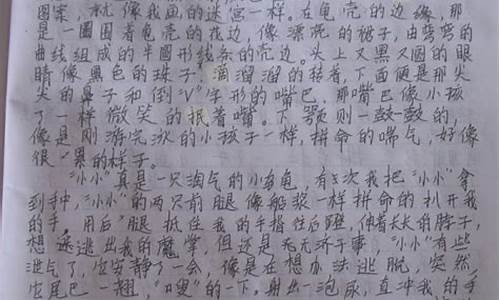 图案，就像我画的迷宫一样。在龟壳的边缘，那
是一圈围着龟壳的花边，像漂亮的裙子，由弯弯的
曲线组成的半圆形线条的壳边。头上又黑又圆的眼
睛像黑色的珠子，滴溜溜的转着，下面便是那尖
尖的鼻子和倒"V"字形的嘴巴，那嘴巴像小孩
了一样微笑的抿着嘴。下颚则一鼓一鼓的，
像是刚游完泳的小孩子一样，拼命的喘气，好像
很累的样子。
"小小"真是一只淘气的小乌龟，有次我把"小小"拿
到手中，"小小"的两只前腿像船桨一样拼命的扒开我
的手，用后腿抵住我的手指往后蹬，伸着长长的脖子，
想逃出我的魔掌，但还是无济于事。"小小"有些
泄气了，它安静了一会，像是在想办法逃脱，突然，
它尾巴一翘，"嗖"的一下，射出一泡尿，直冲我的手